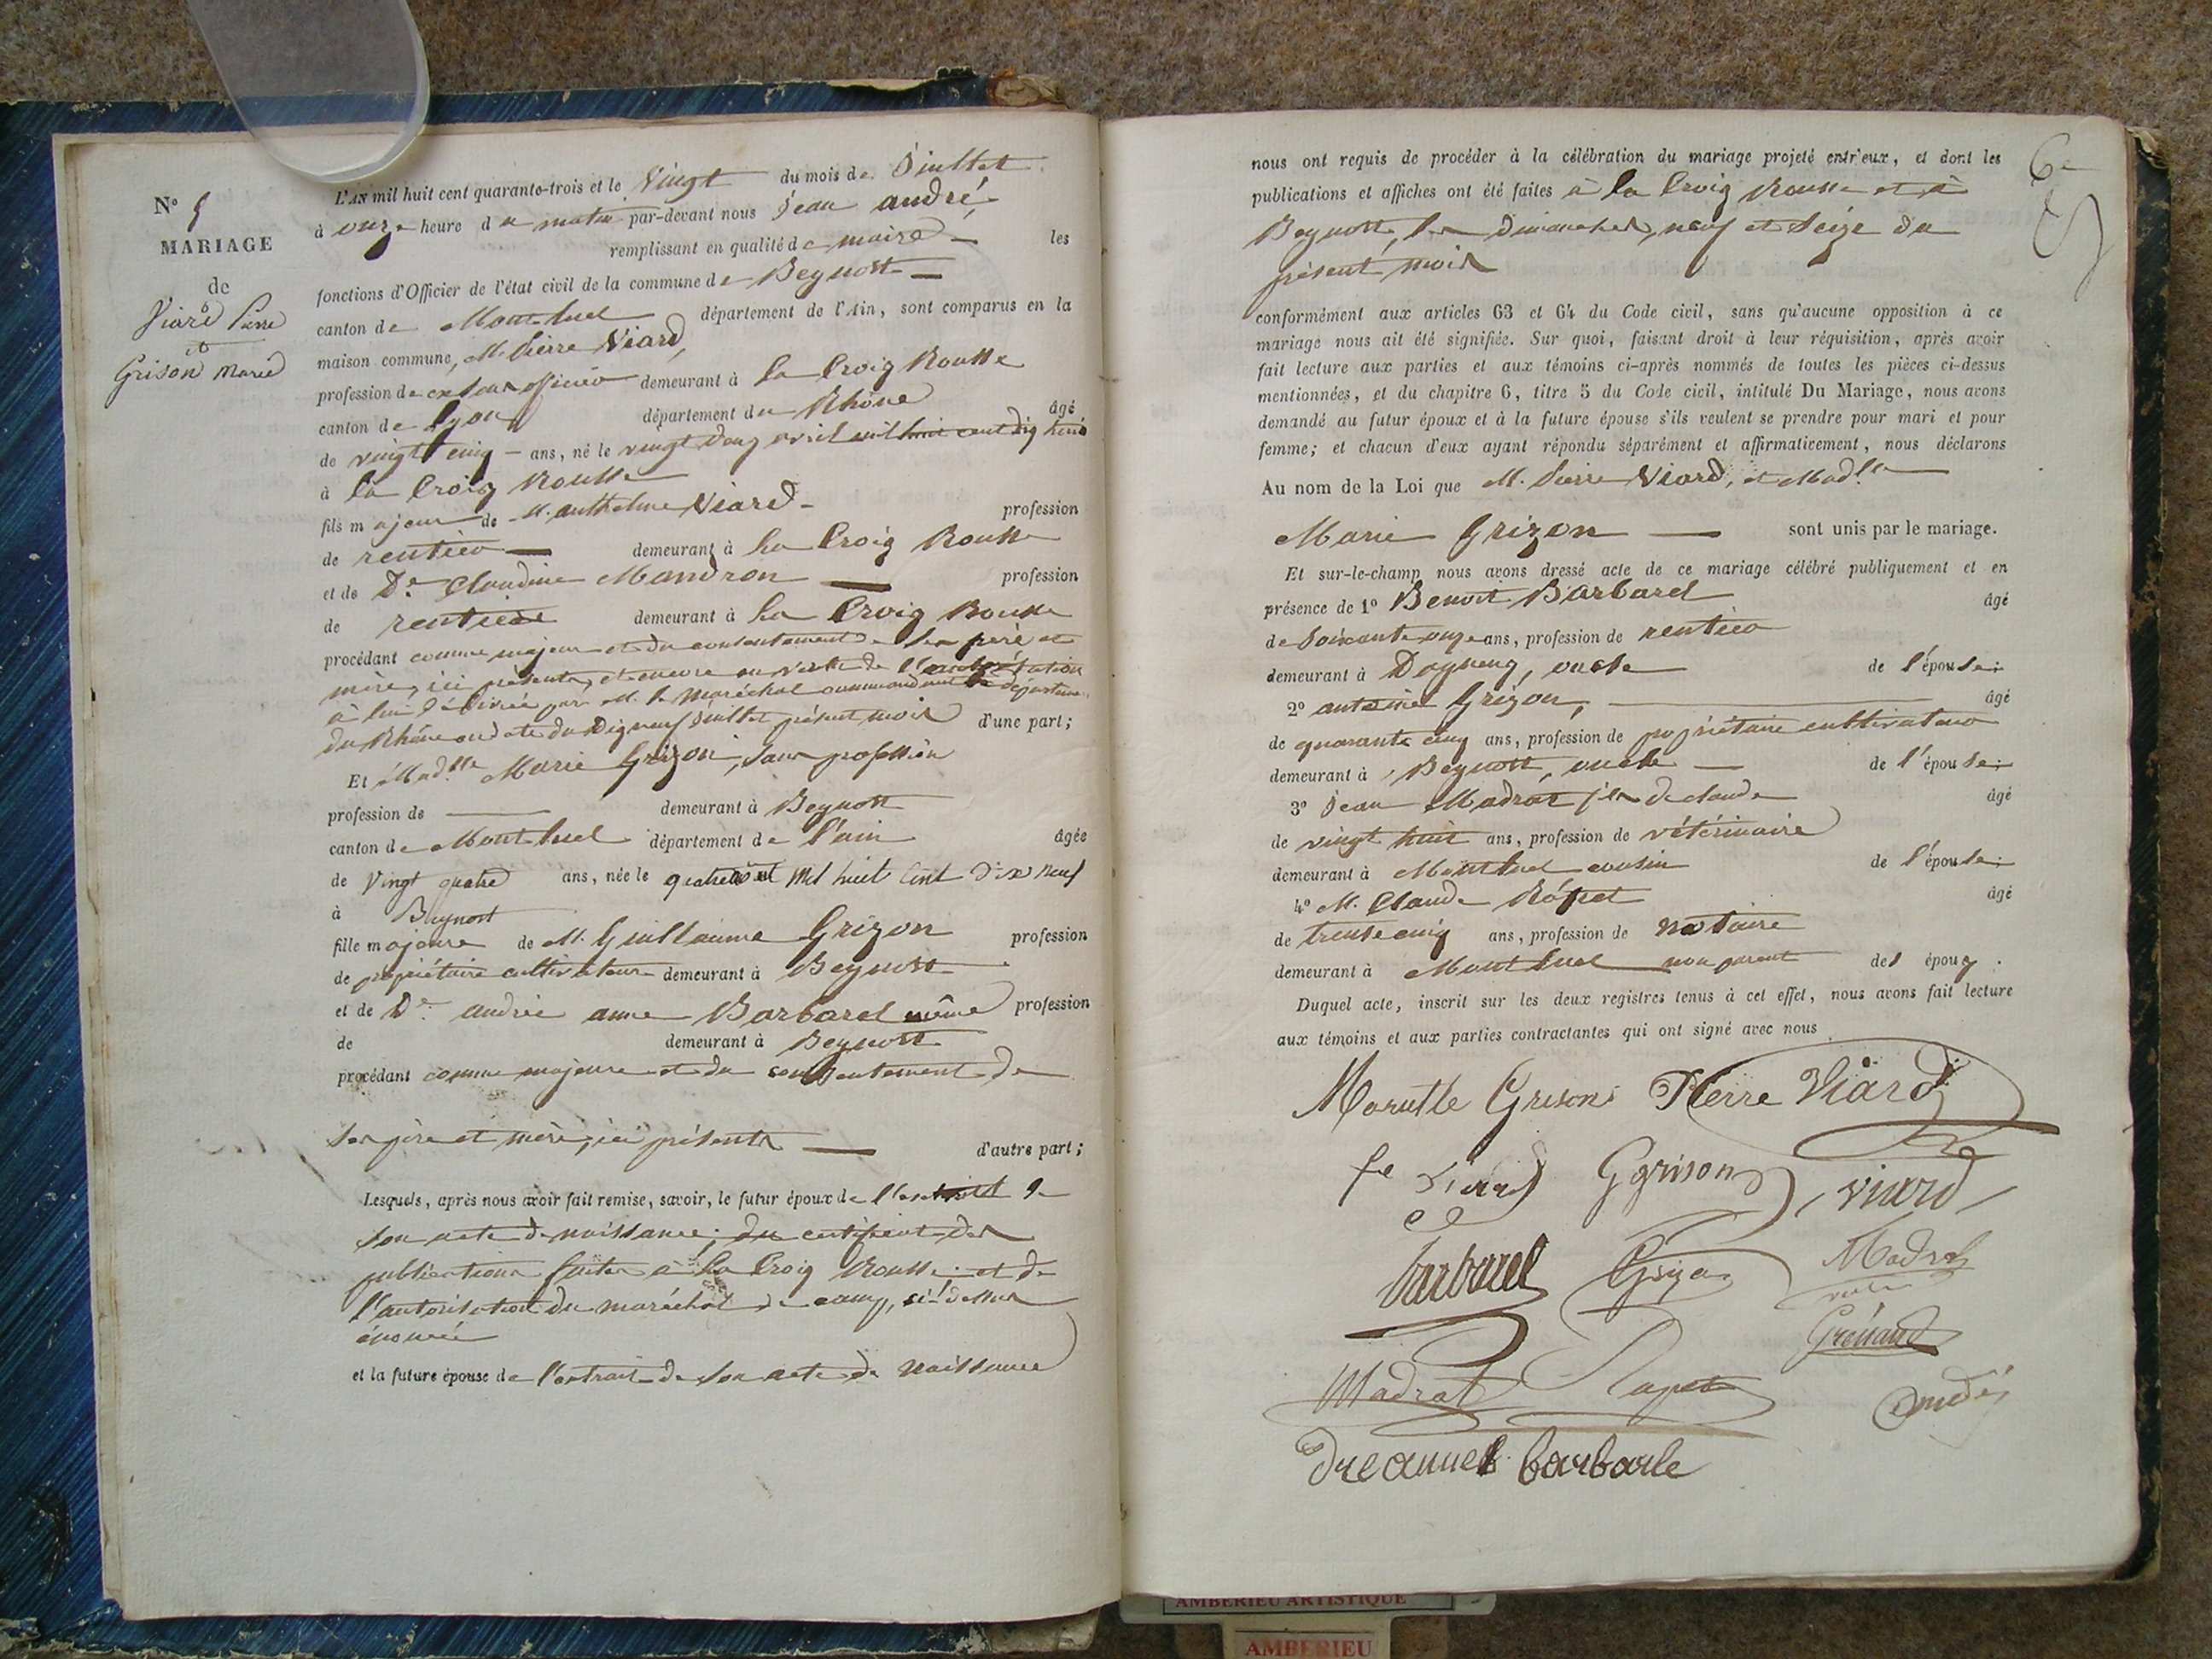 N° 5
MARIAGE
de
Viard Pierre
et
Grison Marie
L'AN mil huit cent quarante-trois et le Vingt du mois de Juillet
à onze heure du matin par-devant nous Jean André,
remplissant en qualité de maire les
fonctions d'Officier de l'état civil de la commune de Beynost
canton de Montluel département de l'Ain, sont comparus en la
maison commune, M. Pierre Viard,
profession de ex sous officier demeurant à la Croix Rousse
canton de Lyon département du Rhône âgé
de vingt cinq ans, né le vingt deux avril mil huit cent dix huit
à la Croix Rousse
fils majeur de M. Anthelme Viard profession
de rentier demeurant à la Croix Rousse
et de De. Claudine Mandron profession
de rentière demeurant à la Croix Rousse
procédant comme majeur et du consentement de ses père et
mère, ici présents, et encore en vertu de l'autorisation
à lui délivrée par M. le Maréchal commandant le départem.
du Rhône en date du Dix neuf Juillet présent mois d'une part;
Et Madlle Marie Grizon, sans profession
profession de demeurant à Beynost
canton de Montluel département de l'ain âgée
de Vingt quatre ans, née le quatre Mil huit Cent Dix neuf
à Beynost
fille majeure de M. Guillaume Grizon profession
de propriétaire cultivateur demeurant à Beynost
et de De. andrée anne Barbarel même profession
de demeurant à Beynost
procédant comme majeure et du consentement de
ses père et mère, ici présents d'autre part;
Lesquels, après nous avoir fait remise, savoir, le futur époux de l'extrait de
son acte de naissance; du certificat des
publications faites à la Croix Rousse et de
l'autorisation du maréchal de camp, ci-dessus
énoncée
et la future épouse de l'extrait de son acte de naissance
nous ont requis de procéder à la célébration du mariage projeté entr'eux, et dont les
publications et affiches ont été faites à la Croix Rousse et à
Beynost, les dimanches, neuf et seize du
présent mois
conformément aux articles 63 et 64 du Code civil, sans qu'aucune opposition à ce
mariage nous ait été signifiée. Sur quoi, faisant droit à leur réquisition, après avoir
fait lecture aux parties et aux témoins ci-après nommés de toutes les pièces ci-dessus
mentionnées, et du chapitre 6, titre 5 du Code civil, intitulé Du Mariage, nous avons
demandé au futur époux et à la future épouse s'ils veulent se prendre pour mari et pour
femme; et chacun d'eux ayant répondu séparément et affirmativement, nous déclarons
Au nom de la Loi que M. Pierre Viard, et Madlle
Marie Grizon sont unis par le mariage.
Et sur-le-champ nous avons dressé acte de ce mariage célébré publiquement et en
présence de 1° Benoit Barbarel âgé
de soixante onze ans, profession de rentier
demeurant à Dagneux, oncle de l'épouse;
2° antoine Grizon, âgé
de quarante cinq ans, profession de propriétaire cultivateur
demeurant à Beynost, oncle de l'épouse;
3° Jean Madras fils de claude âgé
de vingt huit ans, profession de vétérinaire
demeurant à Montluel cousin de l'épouse;
4° M. Claude âgé
de trente cinq ans, profession de notaire
demeurant à Montluel non parent des époux.
Duquel acte, inscrit sur les deux registres tenus à cet effet, nous avons fait lecture
aux témoins et aux parties contractantes qui ont signé avec nous
Grison Pierre Viard
fe Viard Ggrison viard
barbarel Grizon Madras
Grénaud
Madrat André
barbarle
AMBERIEU ARTISTIQUE
AMBERIEU